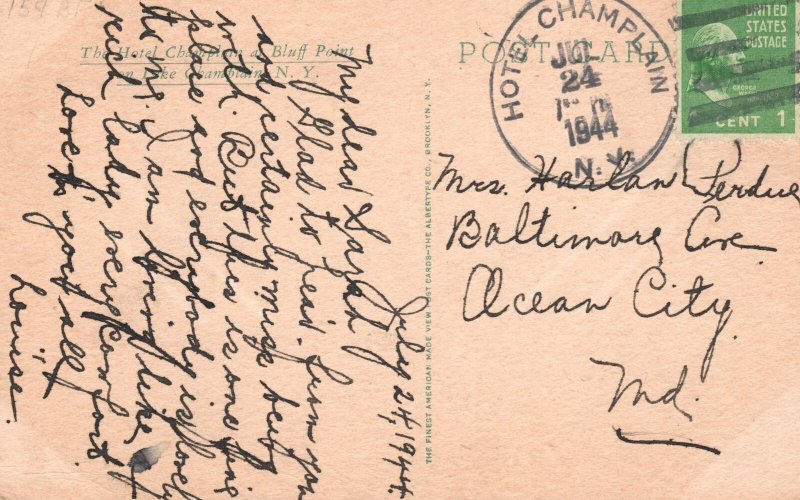 The Hotel Champlain at Bluff Point
on Lake Champlain, N. Y.
POST CARD
HOTEL CHAMPLAIN
JUL
24
1944
N. Y.
UNITED
STATES
POSTAGE
GEORGE
CENT 1
THE FINEST AMERICAN MADE VIEW POST CARDS—THE ALBERTYPE CO., BROOKLYN, N. Y.
July 24, 1944.
My dear Sarah
Glad to hear from you
and certainly miss being
with. But this is one fine
place and everybody is lovely
to me. I am living like
real lady every comfort
Love to you all
Louise.
Mrs. Harlan Perdue
Baltimore Ave
Ocean City.
Md.